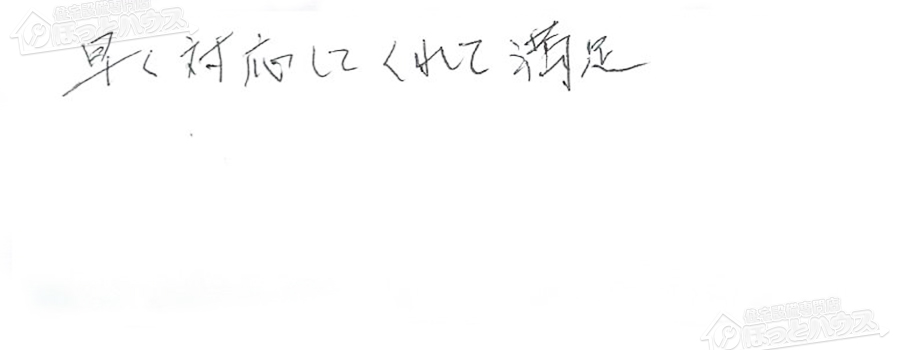 早く対応してくれて満足
ほっとハウス
ほっとハウス